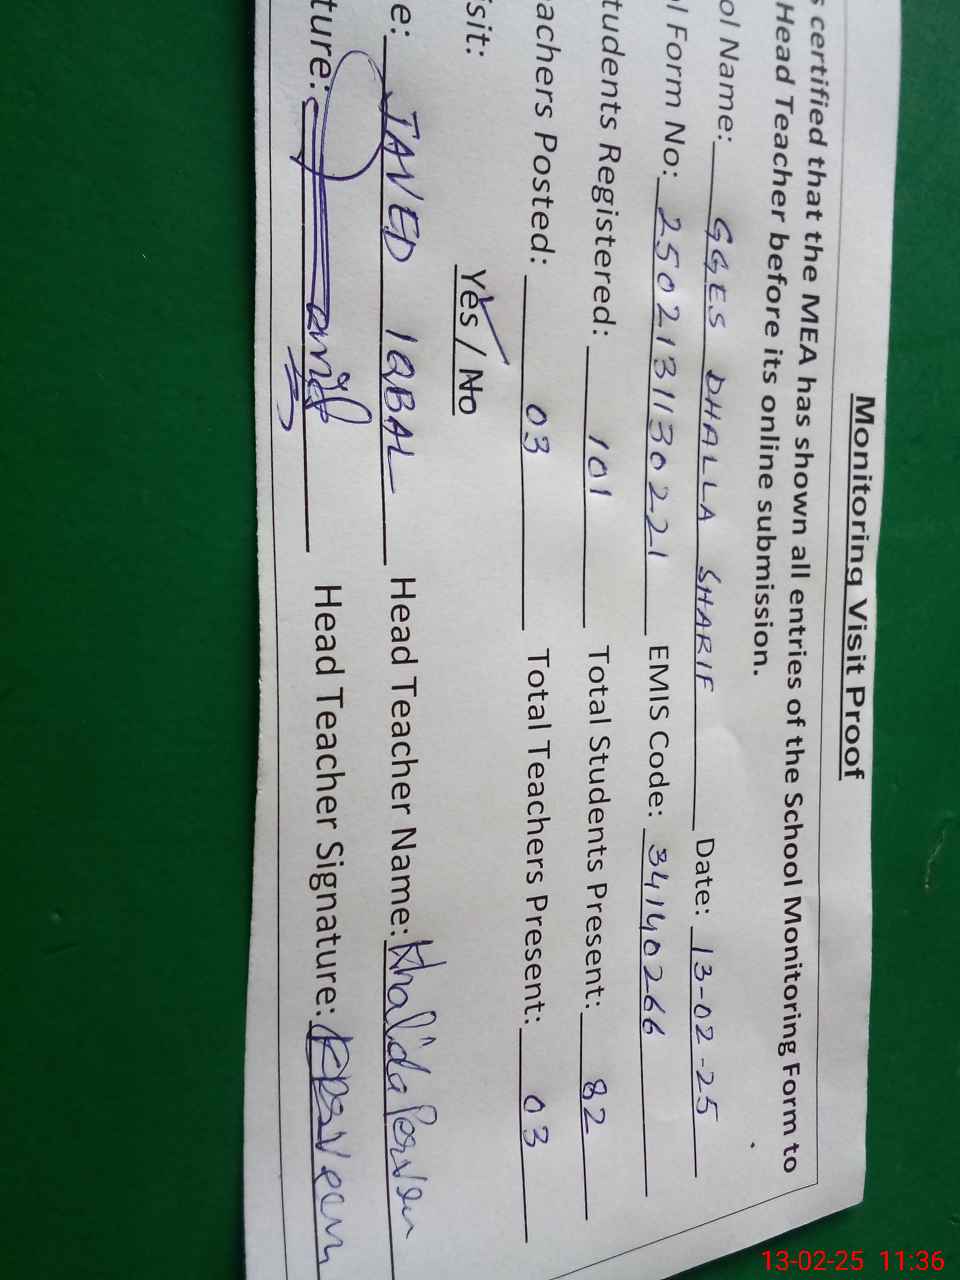 Monitoring Visit Proof
s certified that the MEA has shown all entries of the School Monitoring Form to
Head Teacher before its online submission.
ol Name: GGES DHALLA SHARIF Date: 13-02-25
l Form No: 2502131130221 EMIS Code: 34140266
tudents Registered: 101 Total Students Present: 82
achers Posted: 03 Total Teachers Present: 03
sit: Yes / No
e: JAVED IQBAL Head Teacher Name: Khalida Perveen
ture: Head Teacher Signature: KPerveen
13-02-25 11:36